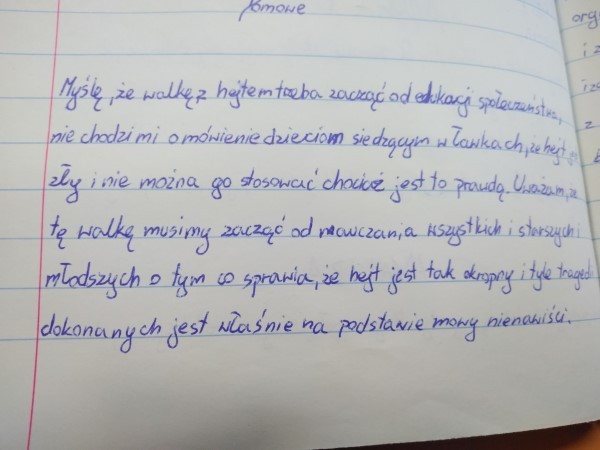 pomowe
Myślę, że walkę z hejtem trzeba zacząć od edukacji społeczeństwa,
nie chodzi mi o mówienie dzieciom siedzącym w ławkach, że hejt
zły i nie można go stosować chociaż jest to prawdą. Uważam, że
tę walkę musimy zacząć od nauczania wszystkich i starszych i
młodszych o tym co sprawia, że hejt jest tak okropny i tyle tragedi
dokonanych jest właśnie na podstawie mowy nienawiści.
org
i z
iza
z